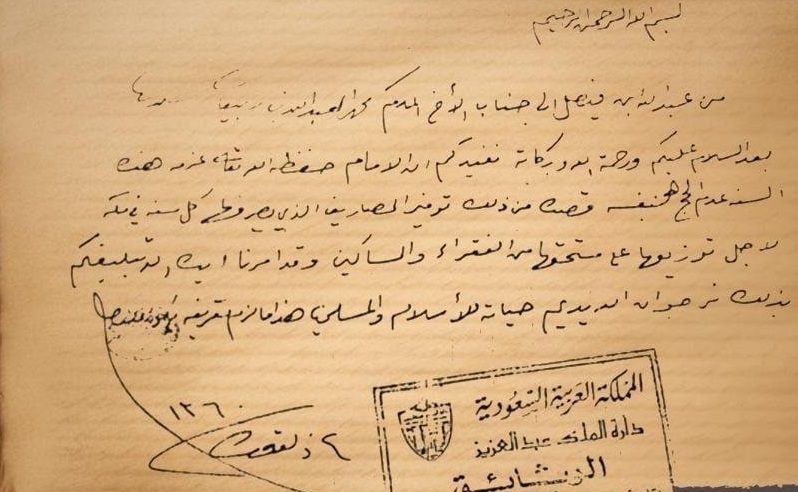 بسم الله الرحمن الرحيم
من عبدالله ابن فيصل الى جناب الأخ المكرم
بعد السلام عليكم ورحمة الله وبركاته نفيدكم ان الامام حفظه الله تعالى عزم هذه
السنه عدم الحج بنفسه قصده من ذلك توفير المصاريف الذي يصرفها كل سنه في مكه
لاجل توزيعها على مستحقها من الفقراء والمساكين وقد امرنا ايده الله تبليغكم
بذلك نرجو ان الله يديم حياته للأسلام والمسلمين هذا ما لزم تعريفه
٢ ذ لقعده ١٣٦٠
المملكة العربية السعودية
دارة الملك عبد العزيز
الوثائق